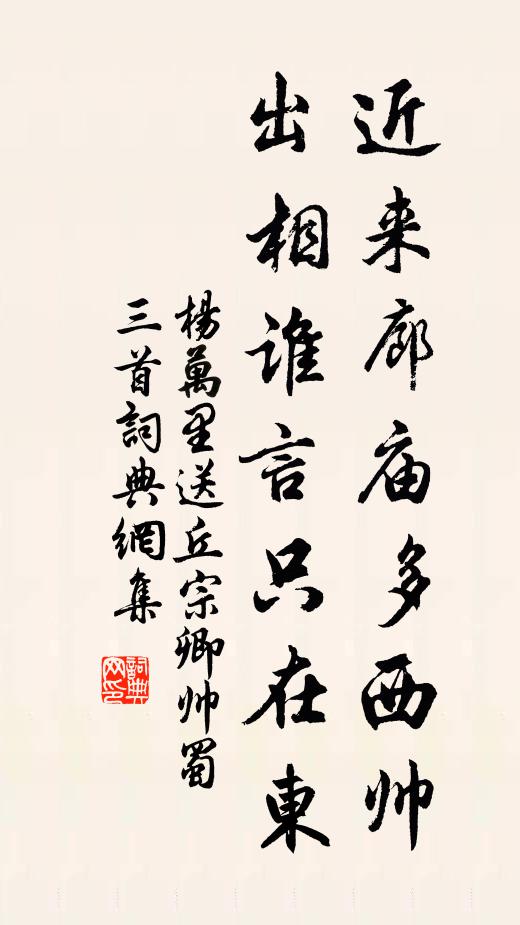 近来廊庙多西帅
出相谁言只在東
楊萬里送丘宗卿帅蜀
三首詞典網集
詞典
网印